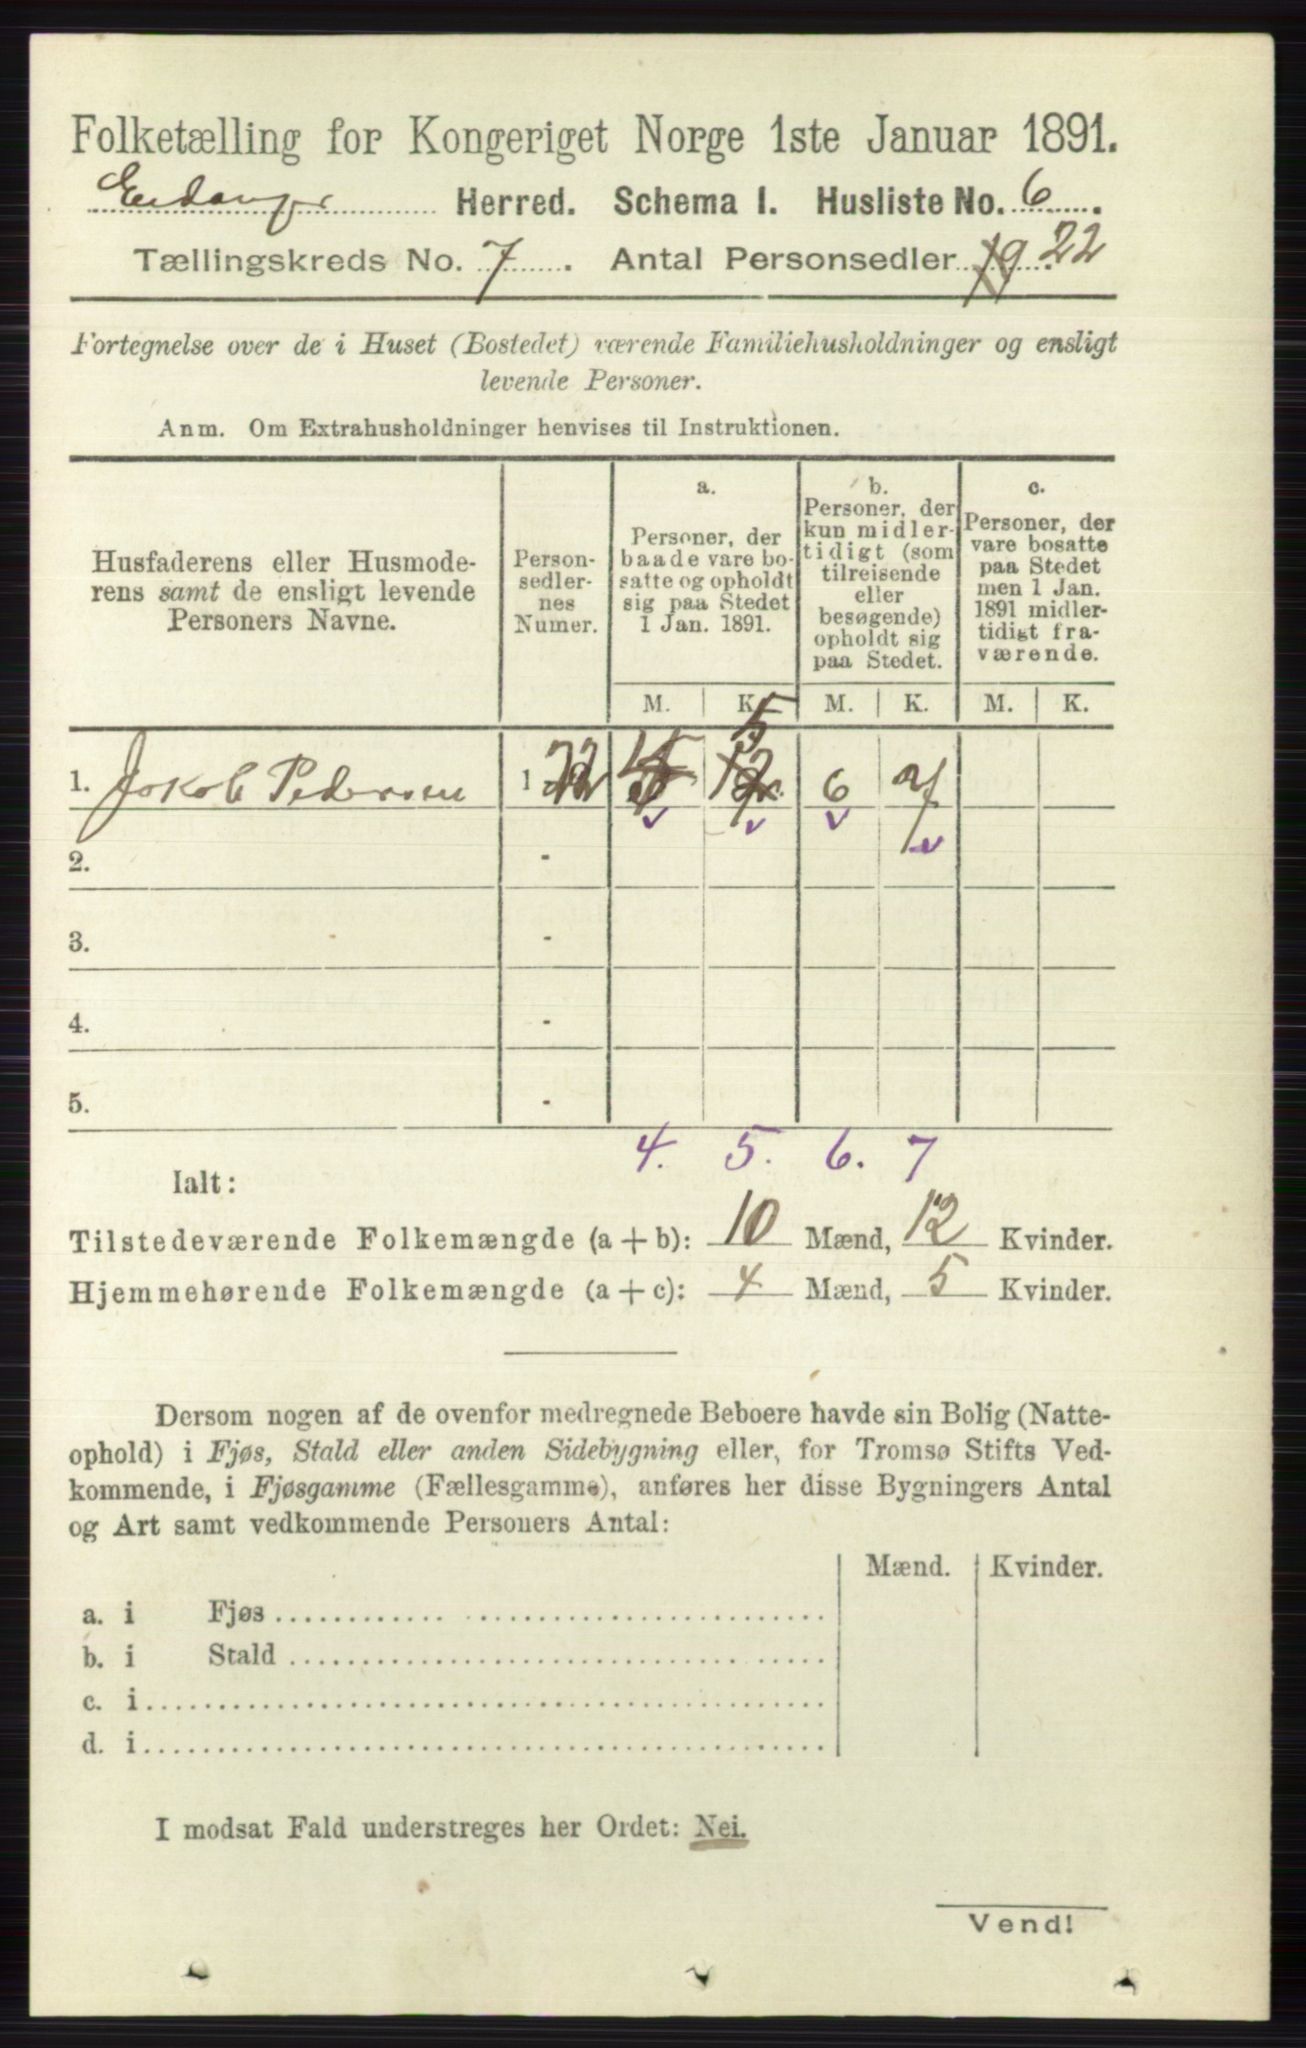 Folketælling for Kongeriget Norge 1ste Januar 1891.
Eidanger Herred. Schema I. Husliste No. 6.
Tællingskreds No. 7. Antal Personsedler 19 22
Fortegnelse over de i Huset (Bostedet) værende Familiehusholdninger og ensligt
levende Personer.
Anm. Om Extrahusholdninger henvises til Instruktionen.
Husfaderens eller Husmode-
rens samt de ensligt levende
Personers Navne.
Person-
sedler-
nes
Numer.
a.
Personer, der
baade vare bo-
satte og opholdt
sig paa Stedet
1 Jan. 1891.
b.
Personer, der
kun midler-
tidigt (som
tilreisende
eller
besøgende)
opholdt sig
paa Stedet.
c.
Personer, der
vare bosatte
paa Stedet
men 1 Jan.
1891 midler-
tidigt fra-
værende.
M. K. M. K. M. K.
1. Jakob Pedersen 1 22 4 5 6 7
2. -
3. -
4. -
5. -
4. 5. 6. 7
Ialt:
Tilstedeværende Folkemængde (a + b): 10 Mænd, 12 Kvinder.
Hjemmehørende Folkemængde (a + c): 4 Mænd, 5 Kvinder.
Dersom nogen af de ovenfor medregnede Beboere havde sin Bolig (Natte-
ophold) i Fjøs, Stald eller anden Sidebygning eller, for Tromsø Stifts Ved-
kommende, i Fjøsgamme (Fællesgamme), anføres her disse Bygningers Antal
og Art samt vedkommende Personers Antal:
Mænd. Kvinder.
a. i Fjøs
b. i Stald
c. i
d. i
I modsat Fald understreges her Ordet: Nei.
Vend!